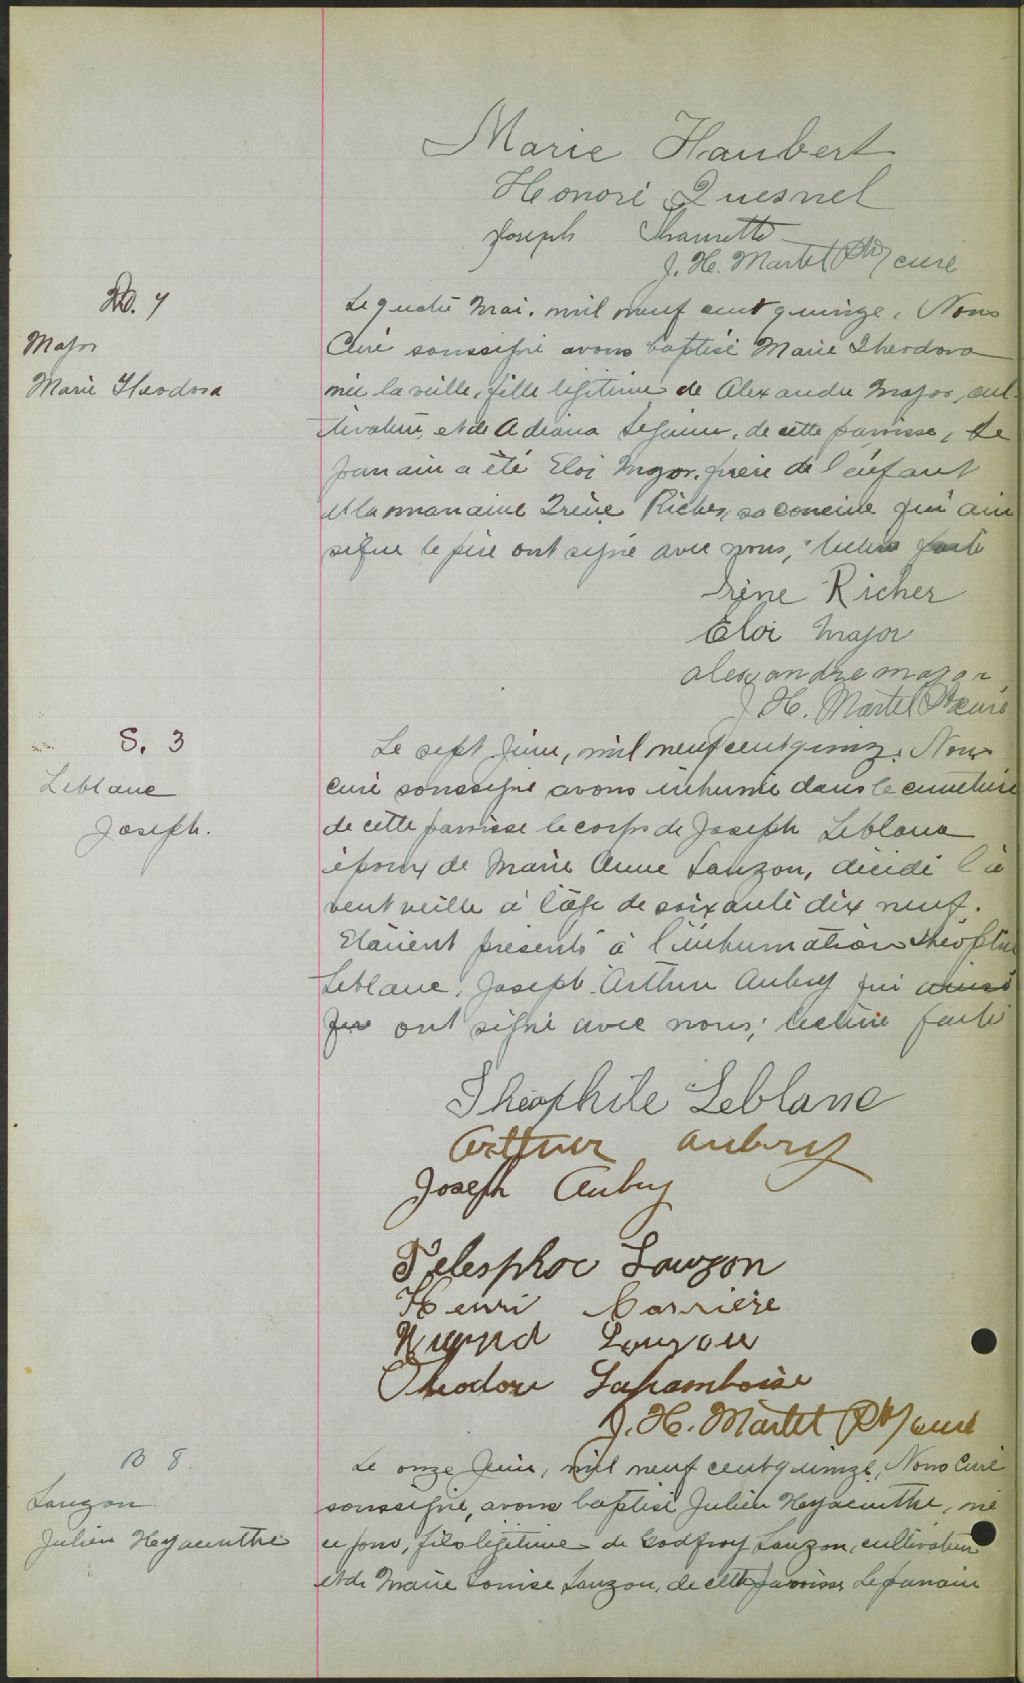 Marie Haubert
Honoré Quesnel
Joseph Thaurette
J. H. Martel Ptr curé
B. 7
Major
Marie Theodora
Le quatre Mai, mil neuf cent quinze, Nous
Curé soussigné avons baptisé Marie Theodora
née la veille, fille légitime de Alexandre Major, cul-
tivateur, et de Adeana Seguin, de cette paroisse, Le
parrain a été Eloi Major, frère de l'enfant
et la marraine Irène Richer, sa cousine qui ain
si que le père ont signé avec nous, lecture faite
Irène Richer
Eloi Major
alexandre major
J. H. Martel Ptr curé
S. 3
Leblanc
Joseph.
Le sept Juin, mil neuf cent quinze, Nous
curé soussigné avons inhumé dans le cimetière
de cette paroisse le corps de Joseph Leblanc
époux de Marie Anne Lauzon, décidé l'a
vant veille à l'âge de soixante dix neuf.
Etaient présents à l'inhumation Théophile
Leblanc, Joseph Arthur Aubry qui ainsi
que ont signé avec nous; lecture faite
Théophile Leblanc
Arthur Aubry
Joseph Aubry
Telesphor Lauzon
Henri Carrière
Lauzon
Theodore Laframboise
J. H. Martel Ptr curé
B 8.
Lauzon
Julien Hyacinthe
Le onze Juin, mil neuf cent quinze, Nous Curé
soussigné, avons baptisé Julien Hyacinthe, né
ce jour, fils légitime de Godfroy Lauzon, cultivateur
et de Marie Louise Lauzon, de cette paroisse Le parrain